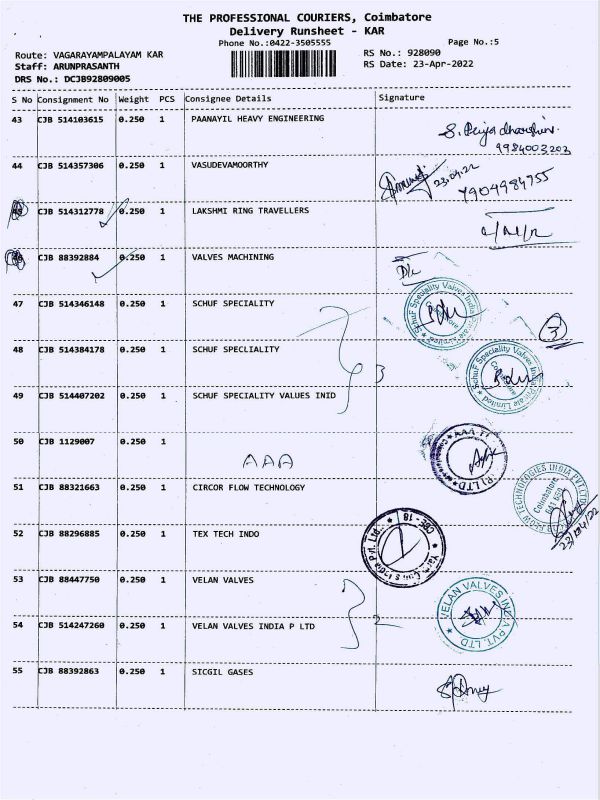 THE PROFESSIONAL COURIERS, Coimbatore
Delivery Runsheet - KAR
Phone No.:0422-3505555
Page No.:5
Route: VAGARAYAMPALAYAM KAR
RS No.: 928090
Staff: ARUNPRASANTH
RS Date: 23-Apr-2022
DRS No.: DCJB92809005
S No Consignment No Weight PCS Consignee Details Signature
43 CJB 514103615 0.250 1 PAANAYIL HEAVY ENGINEERING
S. Priyadharshini
9984003203
44 CJB 514357306 0.250 1 VASUDEVAMOORTHY
23.04.22
7904984755
CJB 514312778 0.250 1 LAKSHMI RING TRAVELLERS
CJB 88392884 0.250 1 VALVES MACHINING
47 CJB 514346148 0.250 1 SCHUF SPECIALITY
SchuF Speciality Valves India Private Limited
3
48 CJB 514384178 0.250 1 SCHUF SPECLIALITY
3
SchuF Speciality Valves India Private Limited
49 CJB 514407202 0.250 1 SCHUF SPECIALITY VALUES INID
50 CJB 1129007 0.250 1
AAA
51 CJB 88321663 0.250 1 CIRCOR FLOW TECHNOLOGY
FLOW TECHNOLOGIES INDIA PVT.LTD
Coimbatore
23/04/22
52 CJB 88296885 0.250 1 TEX TECH INDO
CBE - 18
53 CJB 88447750 0.250 1 VELAN VALVES
2
VELAN VALVES INDIA PVT. LTD
54 CJB 514247260 0.250 1 VELAN VALVES INDIA P LTD
55 CJB 88392863 0.250 1 SICGIL GASES